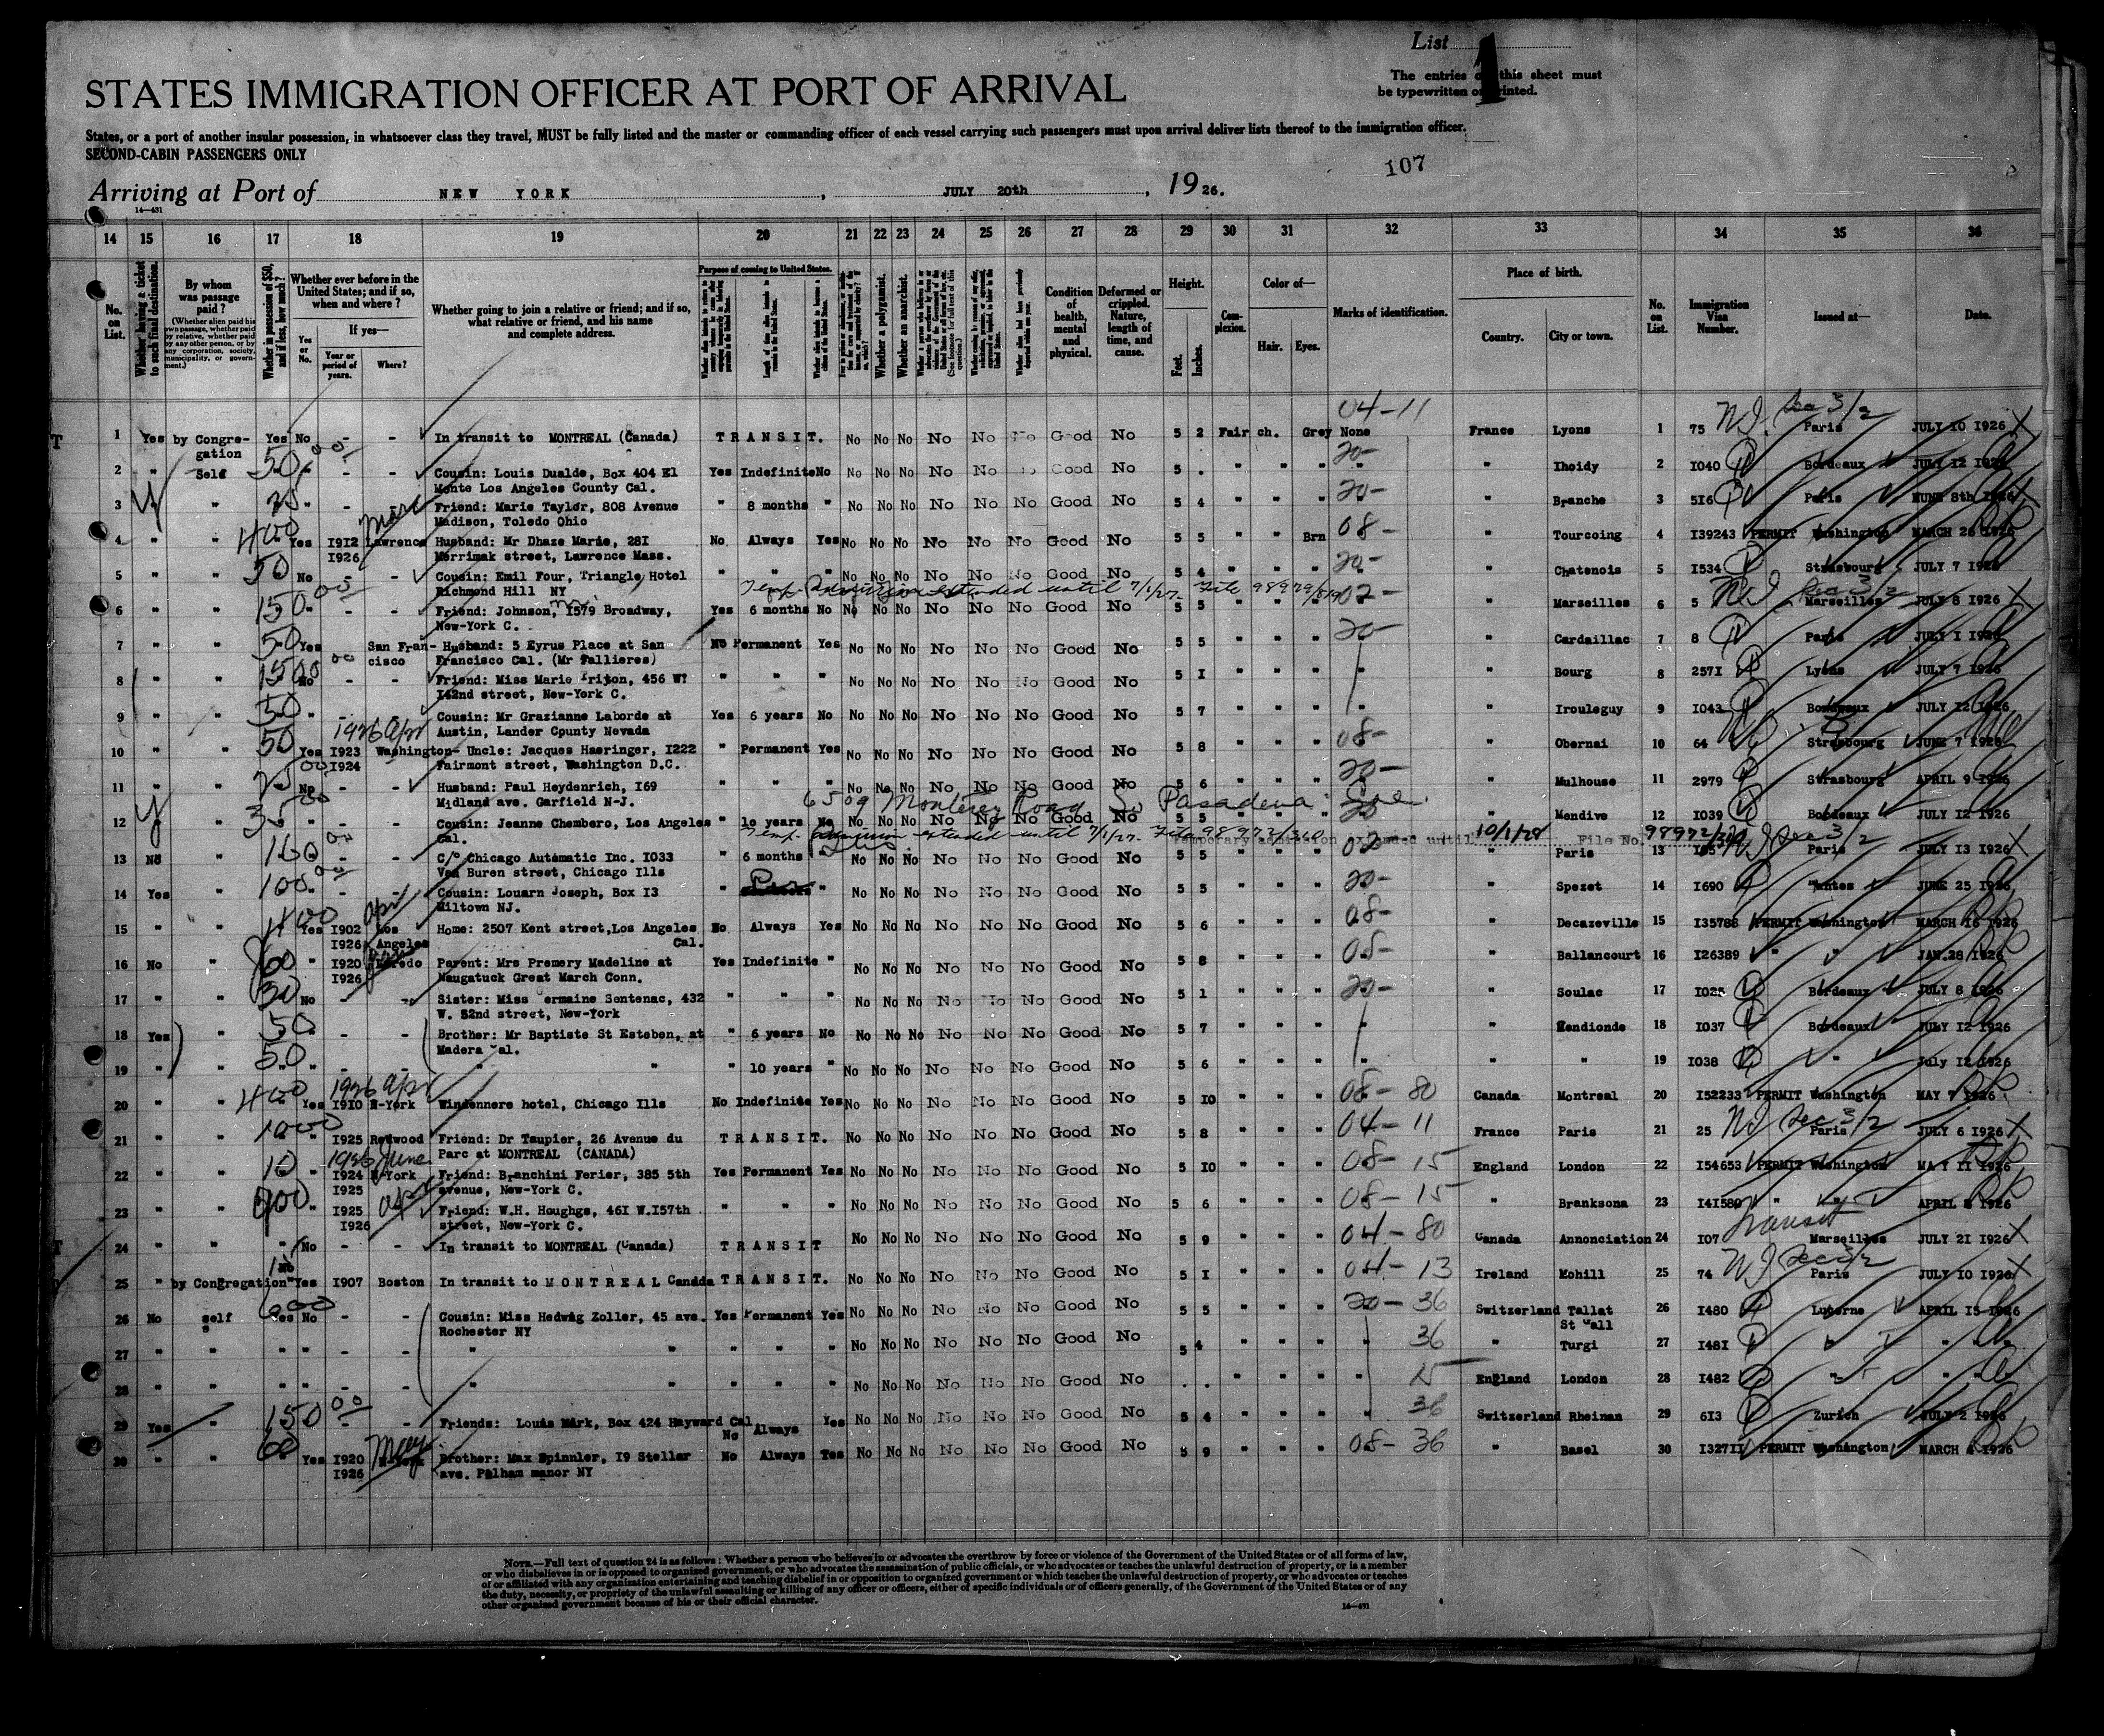 List 1
The entries on this sheet must
be typewritten or printed.
STATES IMMIGRATION OFFICER AT PORT OF ARRIVAL
States, or a port of another insular possession, in whatsoever class they travel, MUST be fully listed and the master or commanding officer of each vessel carrying such passengers must upon arrival deliver lists thereof to the immigration officer.
SECOND-CABIN PASSENGERS ONLY
107
Arriving at Port of NEW YORK, JULY 20th, 1926.
14—431
14 15 16 17 18 19 20 21 22 23 24 25 26 27 28 29 30 31 32 33 34 35 36
No. on List.
Whether having a ticket to such final destination.
By whom was passage paid?
(Whether alien paid his own passage, whether paid by relative, whether paid by any other person, or by any corporation, society, municipality, or government.)
Whether in possession of $50, and if less, how much?
Whether ever before in the United States; and if so, when and where?
Yes or No.
If yes—
Year or period of years.
Where?
Whether going to join a relative or friend; and if so, what relative or friend, and his name and complete address.
Purpose of coming to United States.
Whether a polygamist.
Whether an anarchist.
Condition of health, mental and physical.
Deformed or crippled. Nature, length of time, and cause.
Height.
Feet. Inches.
Complexion.
Color of—
Hair. Eyes.
Marks of identification.
Place of birth.
Country. City or town.
No. on List.
Immigration Visa Number.
Issued at—
Date.
1 Yes by Congregation Yes No - - In transit to MONTREAL (Canada) TRANSIT. No No No No No No Good No 5 2 Fair ch. Grey None 04-11 France Lyons 1 75 Paris JULY 10 1926
2 " Self 50 " - - Cousin: Louis Dualde, Box 404 El Monte Los Angeles County Cal. Yes Indefinite No No No No No No Good No 5 . " " " 20- " Ihoidy 2 1040 Bordeaux JULY 12 1926
3 " " 25 " - Friend: Marie Taylor, 808 Avenue Madison, Toledo Ohio " 8 months " No No No No No No Good No 5 4 " " " 20- " Branche 3 516 Paris JUNE 8th 1926
4 " " 400 Yes 1912 1926 Lawrence Husband: Mr Dhaze Marie, 281 Merrimak street, Lawrence Mass. No Always Yes No No No No No No Good No 5 5 " " Brn 08- " Tourcoing 4 139243 PERMIT Washington MARCH 26 1926
5 " " 50 No - - Cousin: Emil Four, Triangle Hotel Richmond Hill NY " " " No No No No No No Good No 5 4 " " " 20- " Chatenois 5 1534 Strasbourg JULY 7 1926
Temp. admission extended until 7/1/27. File 98979/
6 " " 150 " - - Friend: Johnson, 1579 Broadway, New-York C. Yes 6 months No No No No No No No Good No 5 5 " " " 02- " Marseilles 6 5 Marseilles JULY 8 1926
7 " " 50 Yes San Francisco Husband: 5 Eyrus Place at San Francisco Cal. (Mr Fallieres) No Permanent Yes No No No No No No Good No 5 5 " " " 20- " Cardaillac 7 8 Paris JULY 1 1926
8 " " 1500 No - - Friend: Miss Marie Triton, 456 W? 142nd street, New-York C. " " " No No No No No No Good No 5 1 " " " " Bourg 8 2571 Lyons JULY 7 1926
9 " " 50 " - Cousin: Mr Grazianne Laborde at Austin, Lander County Nevada Yes 6 years No No No No No No No Good No 5 7 " " " " Irouleguy 9 1043 Bordeaux JULY 12 1926
10 " " 50 Yes 1923 1924 1926 Apr Washington- Uncle: Jacques Haeringer, 1222 Fairmont street, Washington D.C. " Permanent Yes No No No No No No Good No 5 8 " " " 08- " Obernai 10 64 Strasbourg JUNE 7 1926
11 " " 25 No - - Husband: Paul Heydenrich, 169 Midland ave. Garfield N-J. " " " No No No No No No Good No 5 6 " " " 20- " Mulhouse 11 2979 Strasbourg APRIL 9 1926
6509 Monterey Road So Pasadena Cal.
12 " " 35 " - - Cousin: Jeanne Chembero, Los Angeles Cal. " 10 years No No No No No No No Good No 5 5 " " " 20 " Mendive 12 1039 Bordeaux JULY 12 1926
Temp. admission extended until 7/1/27. File 98972/360
Temporary admission extended until 10/1/28 File No. 98972/360
13 No " 160 " - - C/o Chicago Automatic Inc. 1033 Van Buren street, Chicago Ills " 6 months " No No No No No No Good No 5 5 " " " 02- " Paris 13 Paris JULY 13 1926
14 Yes " 100 " - - Cousin: Louarn Joseph, Box 13 Miltown NJ. " Per " No No No No No No Good No 5 5 " " " 20- " Spezet 14 1690 Nantes JUNE 25 1926
15 " " 400 Yes 1902 1926 Los Angeles Apr Home: 2507 Kent street, Los Angeles Cal. No Always Yes No No No No No No Good No 5 6 " " " 08- " Decazeville 15 135788 PERMIT Washington MARCH 16 1926
16 No " 60 " 1920 1926 Laredo Parent: Mrs Premery Madeline at Naugatuck Great March Conn. Yes Indefinite " No No No No No No Good No 5 8 " " " 08- " Ballancourt 16 126389 " " JAN.28 1926
17 " " 30 No - - Sister: Miss Germaine Sentenac, 432 W. 52nd street, New-York " " " No No No No No No Good No 5 1 " " " 20- " Soulac 17 1025 Bordeaux JULY 8 1926
18 Yes " 50 " - - Brother: Mr Baptiste St Esteben, at Madera Cal. " 6 years No No No No No No No Good No 5 7 " " " " Mendionde 18 1037 Bordeaux JULY 12 1926
19 " " 50 " - - " " " 10 years " No No No No No No Good No 5 6 " " " " " 19 1038 " July 12 1926
20 " " 400 Yes 1910 1926 Apr N-York Windennere hotel, Chicago Ills No Indefinite Yes No No No No No No Good No 5 10 " " " 08-80 Canada Montreal 20 152233 PERMIT Washington MAY 7 1926
21 " " 1000 " 1925 Redwood Friend: Dr Taupier, 26 Avenue du Parc at MONTREAL (CANADA) TRANSIT. No No No No No No Good No 5 8 " " " 04-11 France Paris 21 25 Paris JULY 6 1926
22 " " 10 " 1924 1925 1926 June N-York Friend: Branchini Ferier, 385 5th avenue, New-York C. Yes Permanent Yes No No No No No No Good No 5 10 " " " 08-15 England London 22 154653 PERMIT Washington MAY 11 1926
23 " " " 1925 1926 Apr Friend: W.H. Houghgs, 461 W.157th street, New-York C. " " " No No No No No No Good No 5 6 " " " 08-15 " Branksona 23 141580 " " APRIL 8 1926
24 " " " No - - In transit to MONTREAL (Canada) TRANSIT No No No No No No Good No 5 9 " " " 04-80 Canada Annonciation 24 107 Transit Marseilles JULY 21 1926
25 " by Congregation " Yes 1907 Boston In transit to MONTREAL Canada TRANSIT. No No No No No No Good No 5 1 " " " 04-13 Ireland Mohill 25 74 Paris JULY 10 1926
26 No self Yes No - - Cousin: Miss Hedwig Zoller, 45 ave. Rochester NY Yes Permanent Yes No No No No No No Good No 5 5 " " " 20-36 Switzerland Tallat St Gall 26 1480 Lucerne APRIL 15 1926
27 " " " " - - " " " " " No No No No No No Good No 5 4 " " " " 36 " Turgi 27 1481 " " "
28 " " " " - - " " " " " No No No No No No Good No . . " " " " 15 England London 28 1482 " " "
29 Yes " 150 - Friends: Louis Mark, Box 424 Hayward Cal. No Always Yes No No No No No No Good No 5 4 " " " " 36 Switzerland Rheinan 29 613 Zurich JULY 2 1926
30 " " 60 Yes 1920 1926 May Brother: Max Spinnler, 19 Stellar ave. Pelham manor NY No Always Yes No No No No No No Good No 5 9 " " " 08-36 " Basel 30 132711 PERMIT Washington MARCH 4 1926
NOTE.—Full text of question 24 is as follows: Whether a person who believes in or advocates the overthrow by force or violence of the Government of the United States or of all forms of law,
or who disbelieves in or is opposed to organized government, or who advocates the assassination of public officials, or who advocates or teaches the unlawful destruction of property, or is a member
of or affiliated with any organization entertaining and teaching disbelief in or opposition to organized government or which teaches the unlawful destruction of property, or who advocates or teaches
the duty, necessity, or propriety of the unlawful assaulting or killing of any officer or officers, either of specific individuals or of officers generally, of the Government of the United States or of any
other organized government because of his or their official character.
14—431